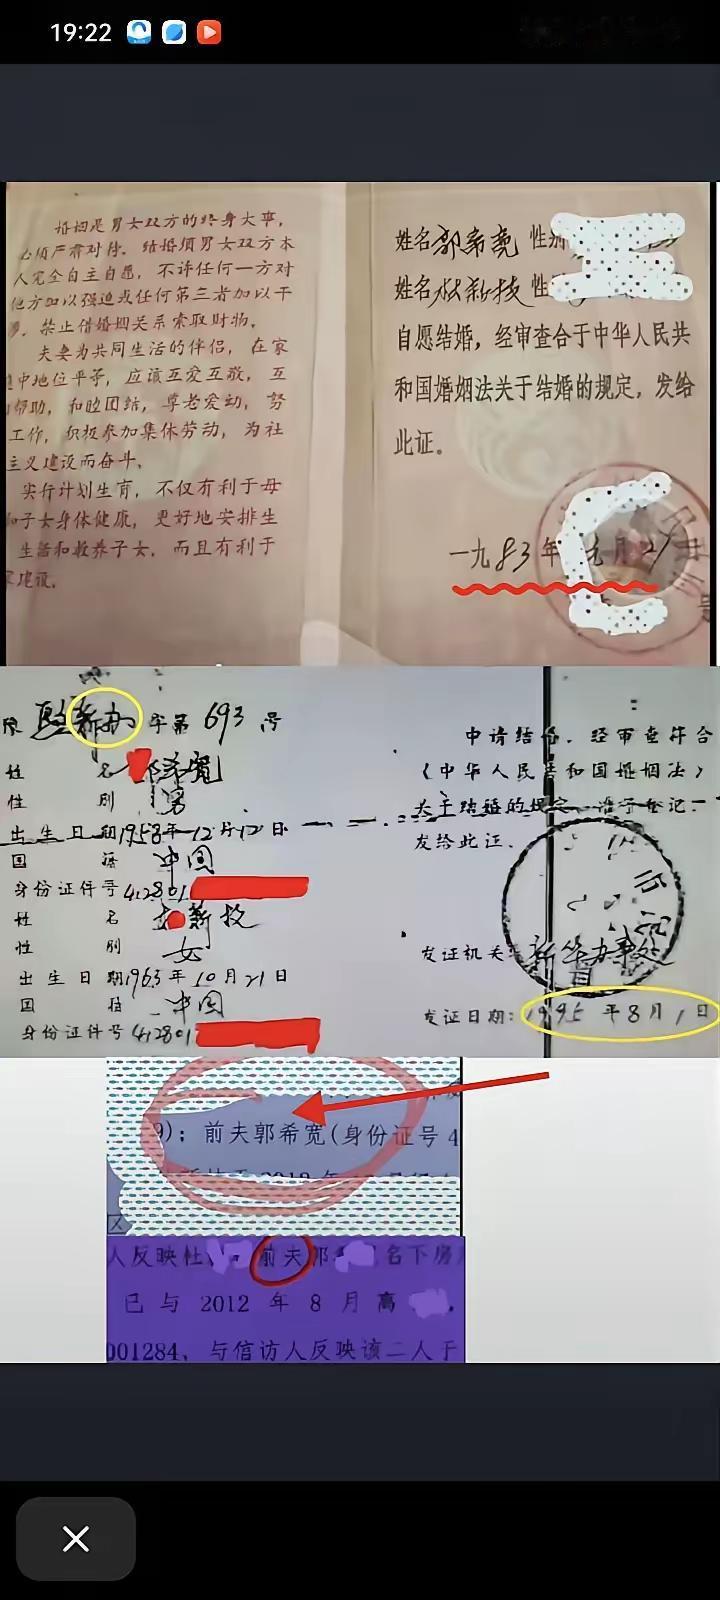 19:22
婚姻是男女双方的终身大事，
必须严肃对待。结婚须男女双方本
人完全自主自愿，不许任何一方对
他方加以强迫或任何第三者加以干
涉。禁止借婚姻关系索取财物。
夫妻为共同生活的伴侣，在家
中地位平等，应该互爱互敬，互
帮助，和睦团结，尊老爱幼，努
工作，积极参加集体劳动，为社
主义建设而奋斗。
实行计划生育，不仅有利于母
和子女身体健康，更好地安排生
生活和教养子女，而且有利于
家建设。
姓名郭希宽 性别
姓名杜新枝 性
自愿结婚，经审查合于中华人民共
和国婚姻法关于结婚的规定，发给
此证。
一九83年元月21
新办 字第 693 号
姓 名 郭希宽
性 别 男
出生日期1958年12月12日
国 籍 中国
身份证件号 412801
姓 名 新枝
性 别 女
出生日期1963年10月21日
国 籍 中国
身份证件号 412801
申请结婚，经审查符合
《中华人民共和国婚姻法》
关于结婚的规定，准予登记，
发给此证。
发证机关：新华办事处
发证日期：1995年8月1日
9)；前夫郭希宽(身份证号4
区
人反映杜 前夫郭 名下房
已与 2012 年 8 月离
001284，与信访人反映该二人于